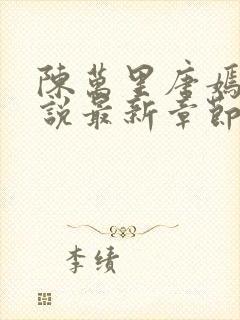 陳萬里唐嫣
說最新章節
李績